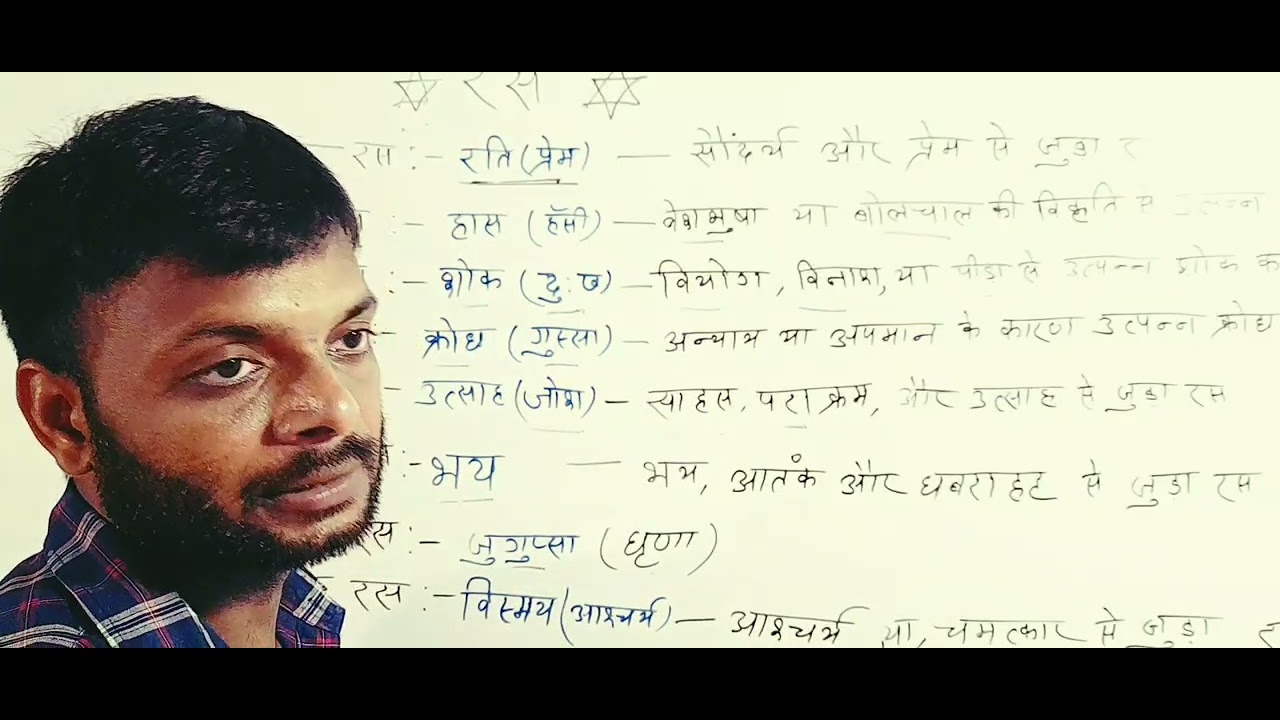 रस
रस :- रति (प्रेम) — सौंदर्य और प्रेम से जुड़ा
:- हास (हँसी) — वेशभुषा या बोलचाल की विकृति से उत्पन्न
:- शोक (दुःख) — वियोग, विनाश, या पीडा से उत्पन्न शोक
क्रोध (गुस्सा) — अन्याय या अपमान के कारण उत्पन्न क्रोध
- उत्साह (जोश) — साहस, पराक्रम, और उत्साह से जुडा रस
:- भय — भय, आतंक और घबराहट से जुडा रस
:- जुगुप्सा (घृणा)
रस :- विस्मय (आश्चर्य) — आश्चर्य या, चमत्कार से जुड़ा